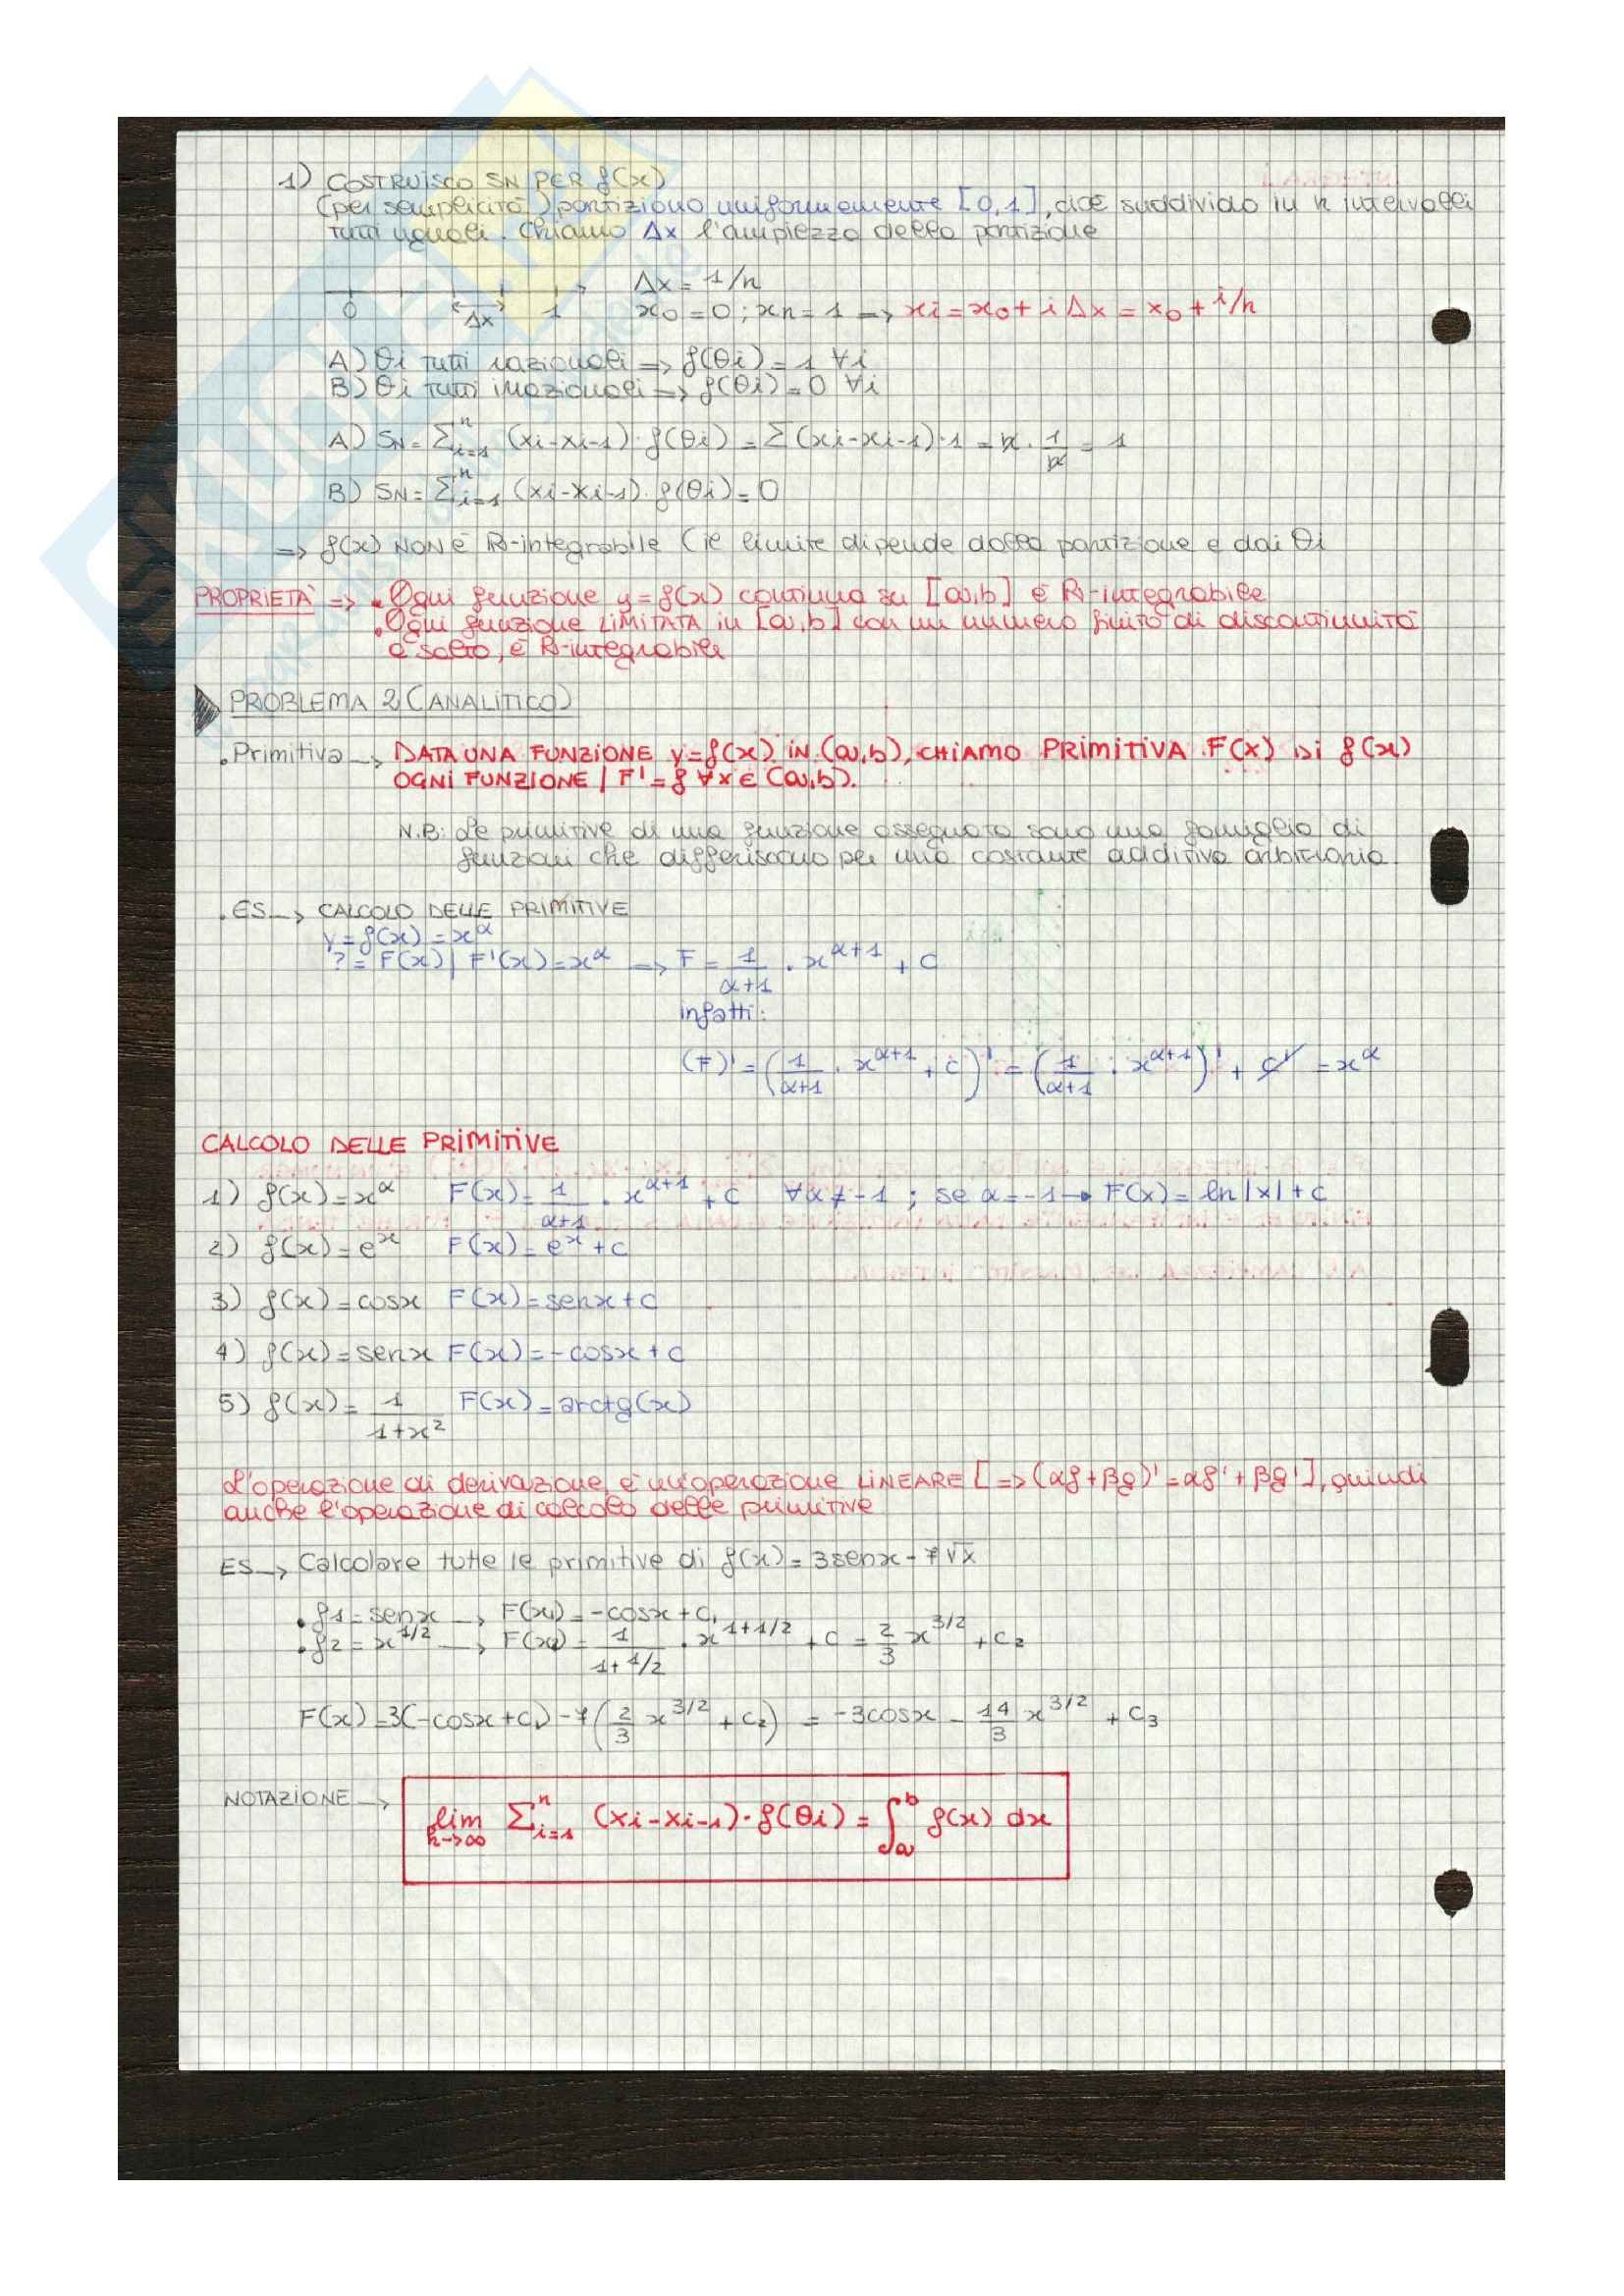 1) COSTRUISCO SN PER f(x)
(per semplicità) partiziono uniformemente [0,1], cioè suddivido in n intervalli
tutti uguali. Chiamo Δx l'ampiezza della partizione
Δx = 1/n
0 Δx 1 x0=0 ; xn=1 => xi=x0+iΔx=x0+i/n
A) θi tutti razionali => f(θi)=1 ∀i
B) θi tutti irrazionali => f(θi)=0 ∀i
A) SN=Σ^n_{i=1} (xi-xi-1)·f(θi)=Σ(xi-xi-1)·1=n·1/n=1
B) SN=Σ^n_{i=1} (xi-xi-1)·f(θi)=0
=> f(x) NON È R-integrabile (il limite dipende dalla partizione e dai θi
PROPRIETÀ => . Ogni funzione y=f(x) continua su [a,b] è R-integrabile
. Ogni funzione LIMITATA in [a,b] con un numero finito di discontinuità
a salto, è R-integrabile
PROBLEMA 2 (ANALITICO)
. Primitiva → DATA UNA FUNZIONE y=f(x) IN (a,b), CHIAMO PRIMITIVA F(x) DI f(x)
OGNI FUNZIONE | F'=f ∀x∈(a,b).
N.B: Le primitive di una funzione assegnata sono una famiglia di
funzioni che differiscono per una costante additiva arbitraria.
. ES → CALCOLO DELLE PRIMITIVE
y=f(x)=x^α
?=F(x) | F'(x)=x^α => F=1/(α+1)·x^{α+1}+c
infatti:
(F)'=(1/(α+1)·x^{α+1}+c)'=(1/(α+1)·x^{α+1})'+c'=x^α
CALCOLO DELLE PRIMITIVE
1) f(x)=x^α F(x)=1/(α+1)·x^{α+1}+c ∀α≠-1 ; se α=-1 → F(x)=ln|x|+c
2) f(x)=e^x F(x)=e^x+c
3) f(x)=cosx F(x)=senx+c
4) f(x)=senx F(x)=-cosx+c
5) f(x)=1/(1+x²) F(x)=arctg(x)
L'operazione di derivazione, è un'operazione LINEARE [=>(αf+βg)'=αf'+βg'], quindi
anche l'operazione di calcolo delle primitive
ES → Calcolare tutte le primitive di f(x)=3senx-7√x
. f1=senx → F(x1)=-cosx+c1
. f2=x^{1/2} → F(x2)=1/(1+1/2)·x^{1+1/2}+c=2/3 x^{3/2}+c2
F(x)=3(-cosx+c1)-7(2/3 x^{3/2}+c2) = -3cosx-14/3 x^{3/2}+c3
NOTAZIONE → lim_{n→∞} Σ^n_{i=1} (xi-xi-1)·f(θi)=∫_a^b f(x) dx